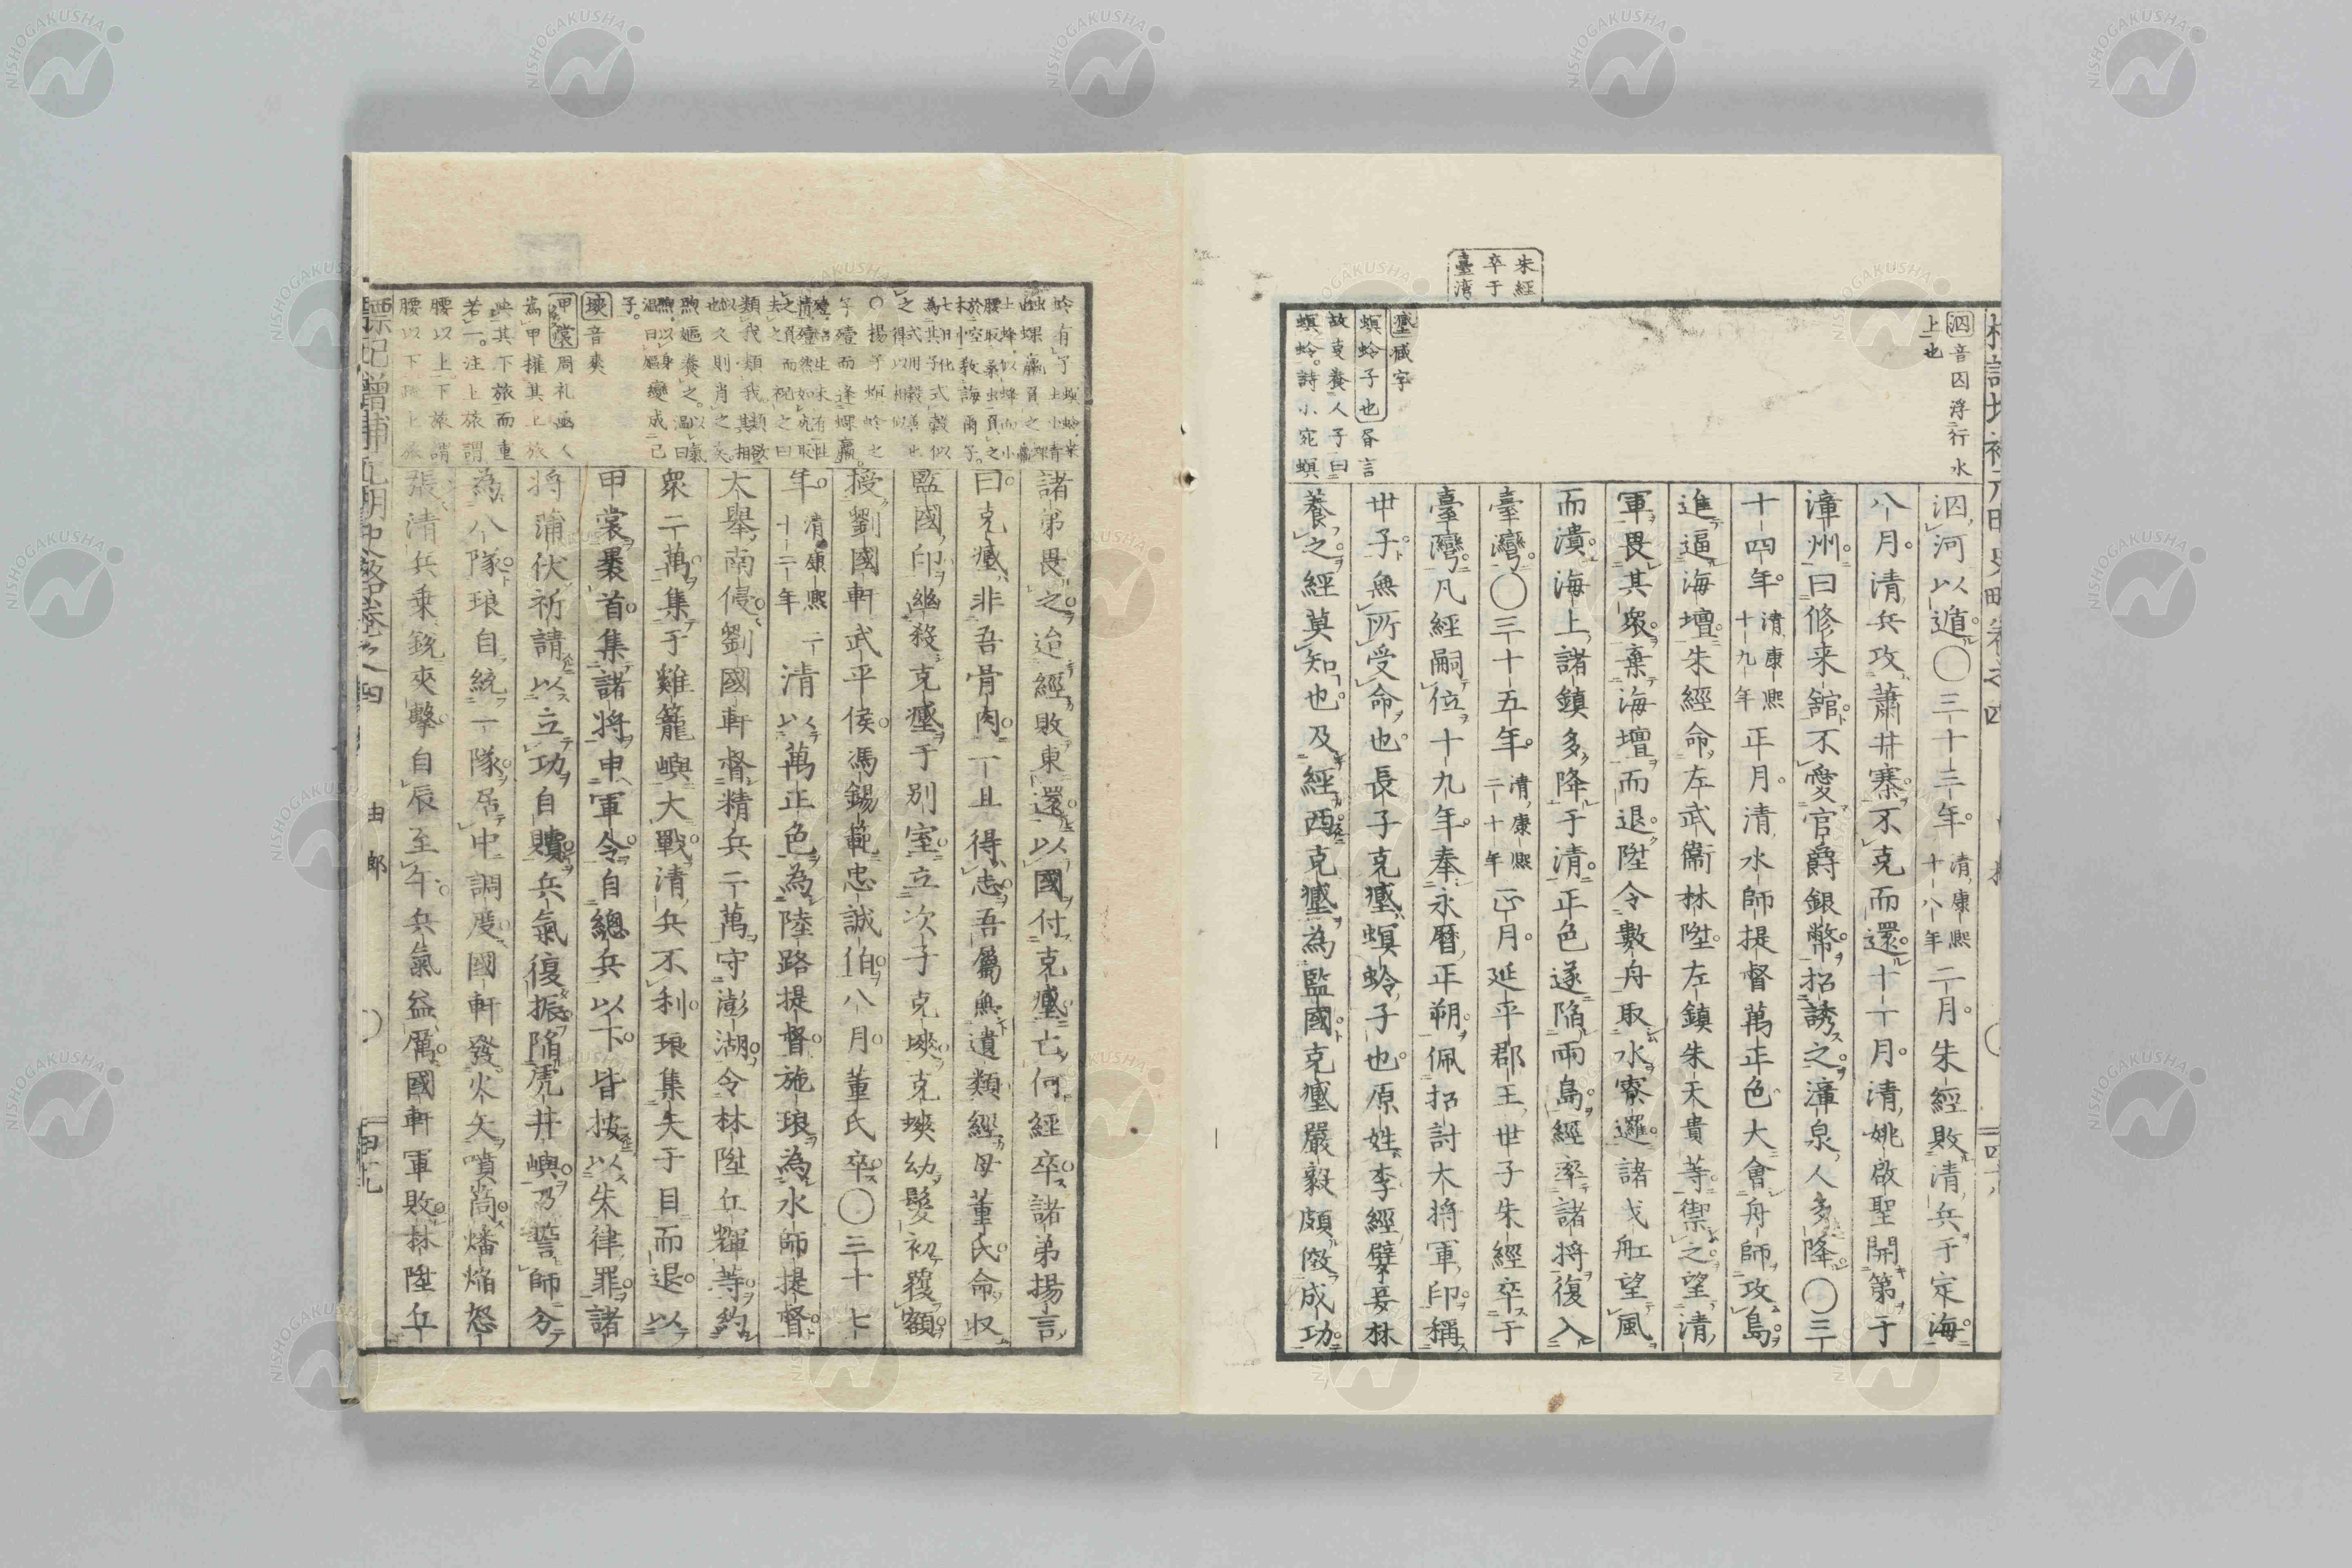 朱經
卒于
臺湾
泅音囚浮行水
上也
𡒉臧字
螟蛉子也昏言
故克養人子曰
螟蛉詩小宛螟
泅河以遁○三十三年清康熙十八年二月朱經敗清兵于定海
八月清兵攻蕭井寨不克而還十一月清姚啟聖開第于
漳州曰修来舘不愛官爵銀幣招誘之漳泉人多降○三
十四年清康熙十九年正月清水師提督萬正色大會舟師攻島
進逼海壇朱經命左武衞林陞左鎮朱天貴等禦之望清
軍畏其衆棄海壇而退陞令數舟取水寮邏諸戈舡望風
而潰海上諸鎮多降于清正色遂陷兩島經率諸將復入
臺灣○三十五年清康熙二十年正月延平郡王世子朱經卒于
臺灣凡經嗣位十九年奉永曆正朔佩招討大將軍印稱
世子無所受命也長子克𡒉螟蛉子也原姓李經嬖妾林
養之經莫知也及經西克𡒉為監國克𡒉嚴毅頗倣成功
諸弟畏之迨經敗東還以國付克𡒉亡何經卒諸弟揚言
曰克𡒉非吾骨肉一旦得志吾屬無遺類經母董氏命収
監國印幽殺克𡒉于別室立次子克塽克塽幼髮初覆額
授劉國軒武平侯馮錫範忠誠伯八月董氏卒○三十七
年清康熙二十二年清以萬正色為陸路提督施琅為水師提督
太舉南侵劉國軒督精兵二萬守澎湖令林陞丘輝等約
衆二萬集于雞籠嶼大戰清兵不利琅集矢于目而退以
甲裳裹首集諸將申軍令自總兵以下皆按以朱律罪諸
將蒲伏祈請以立功自贖兵氣復振陷虎井嶼乃誓師分
為八隊琅自統一隊居中調度國軒發火矢噴筒燔焔怒
張清兵乗銳夾擊自辰至午兵氣益厲國軒軍敗林陞丘
塽音爽
甲裳周礼凾人
為甲權其上旅
與其下旅而重
若一。注上旅謂
腰以上下旅謂
腰以下
標記增補元明史畧卷之四